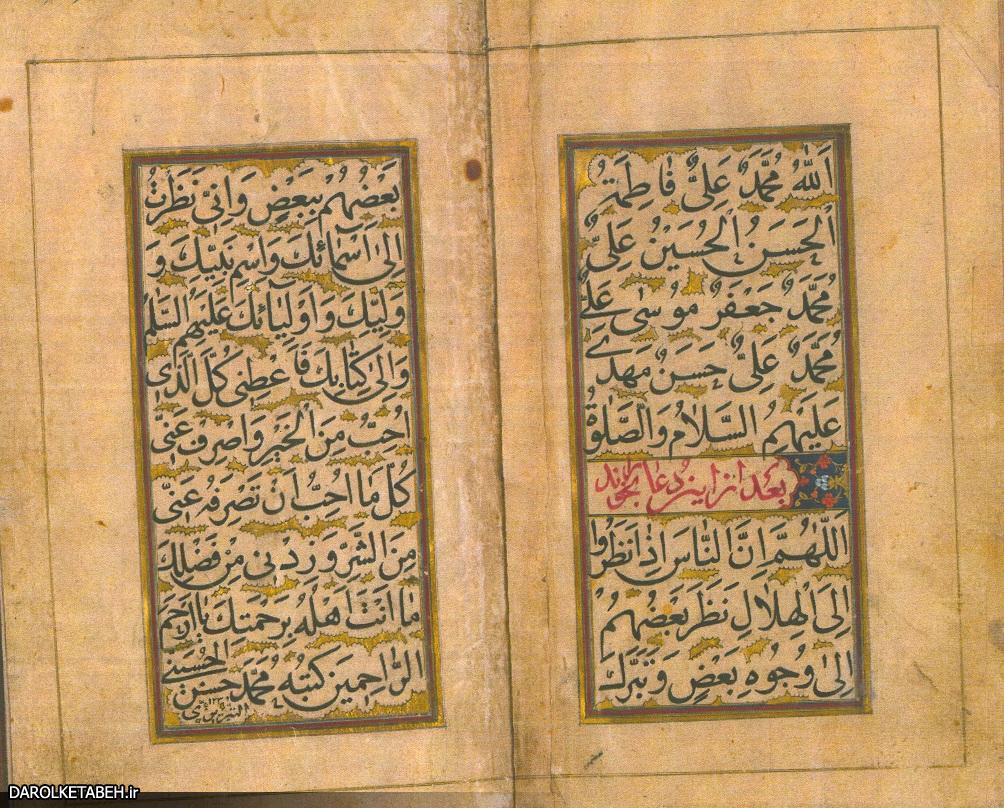 اَللّٰهُ مُحَمَّدٌ عَلِیٌّ فَاطِمَةُ
اَلْحَسَنُ اَلْحُسَیْنُ عَلِیٌّ
مُحَمَّدٌ جَعْفَرٌ مُوسٰی عَلِیٌّ
مُحَمَّدٌ عَلِیٌّ حَسَنٌ مَهْدِی
عَلَیْهِمُ السَّلَامُ وَالصَّلٰوةُ
بعد از این دعا بخواند
اَللّٰهُمَّ اِنَّ النَّاسَ اِذَا نَظَرُوا
اِلَی الْهِلَالِ نَظَرَ بَعْضُهُمْ
اِلٰی وُجُوهِ بَعْضٍ وَ تَبَرَّكَ
بَعْضُهُمْ بِبَعْضٍ وَ اِنّی نَظَرْتُ
اِلٰی اَسْمٰائِكَ وَاسْمِ نَبِیِّكَ وَ
وَلِیِّكَ وَ اَوْلِیٰائِكَ عَلَیْهِمُ السَّلٰمُ
وَ اِلٰی كِتٰابِكَ فَاَعْطِنی كُلَّ الَّذی
اُحِبُّ مِنَ الْخَیْرِ وَ اصْرِفْ عَنّی
كُلَّ مٰا اُحِبُّ اَنْ تَصْرِفَهُ عَنّی
مِنَ الشَّرِّ وَ زِدْنی مِنْ فَضْلِكَ
مٰا اَنْتَ اَهْلُهُ بِرَحْمَتِكَ یٰا اَرْحَمَ
الرّٰاحِمینَ كتبه محمد حسن الحسینی
DAROLKETABEH.ir